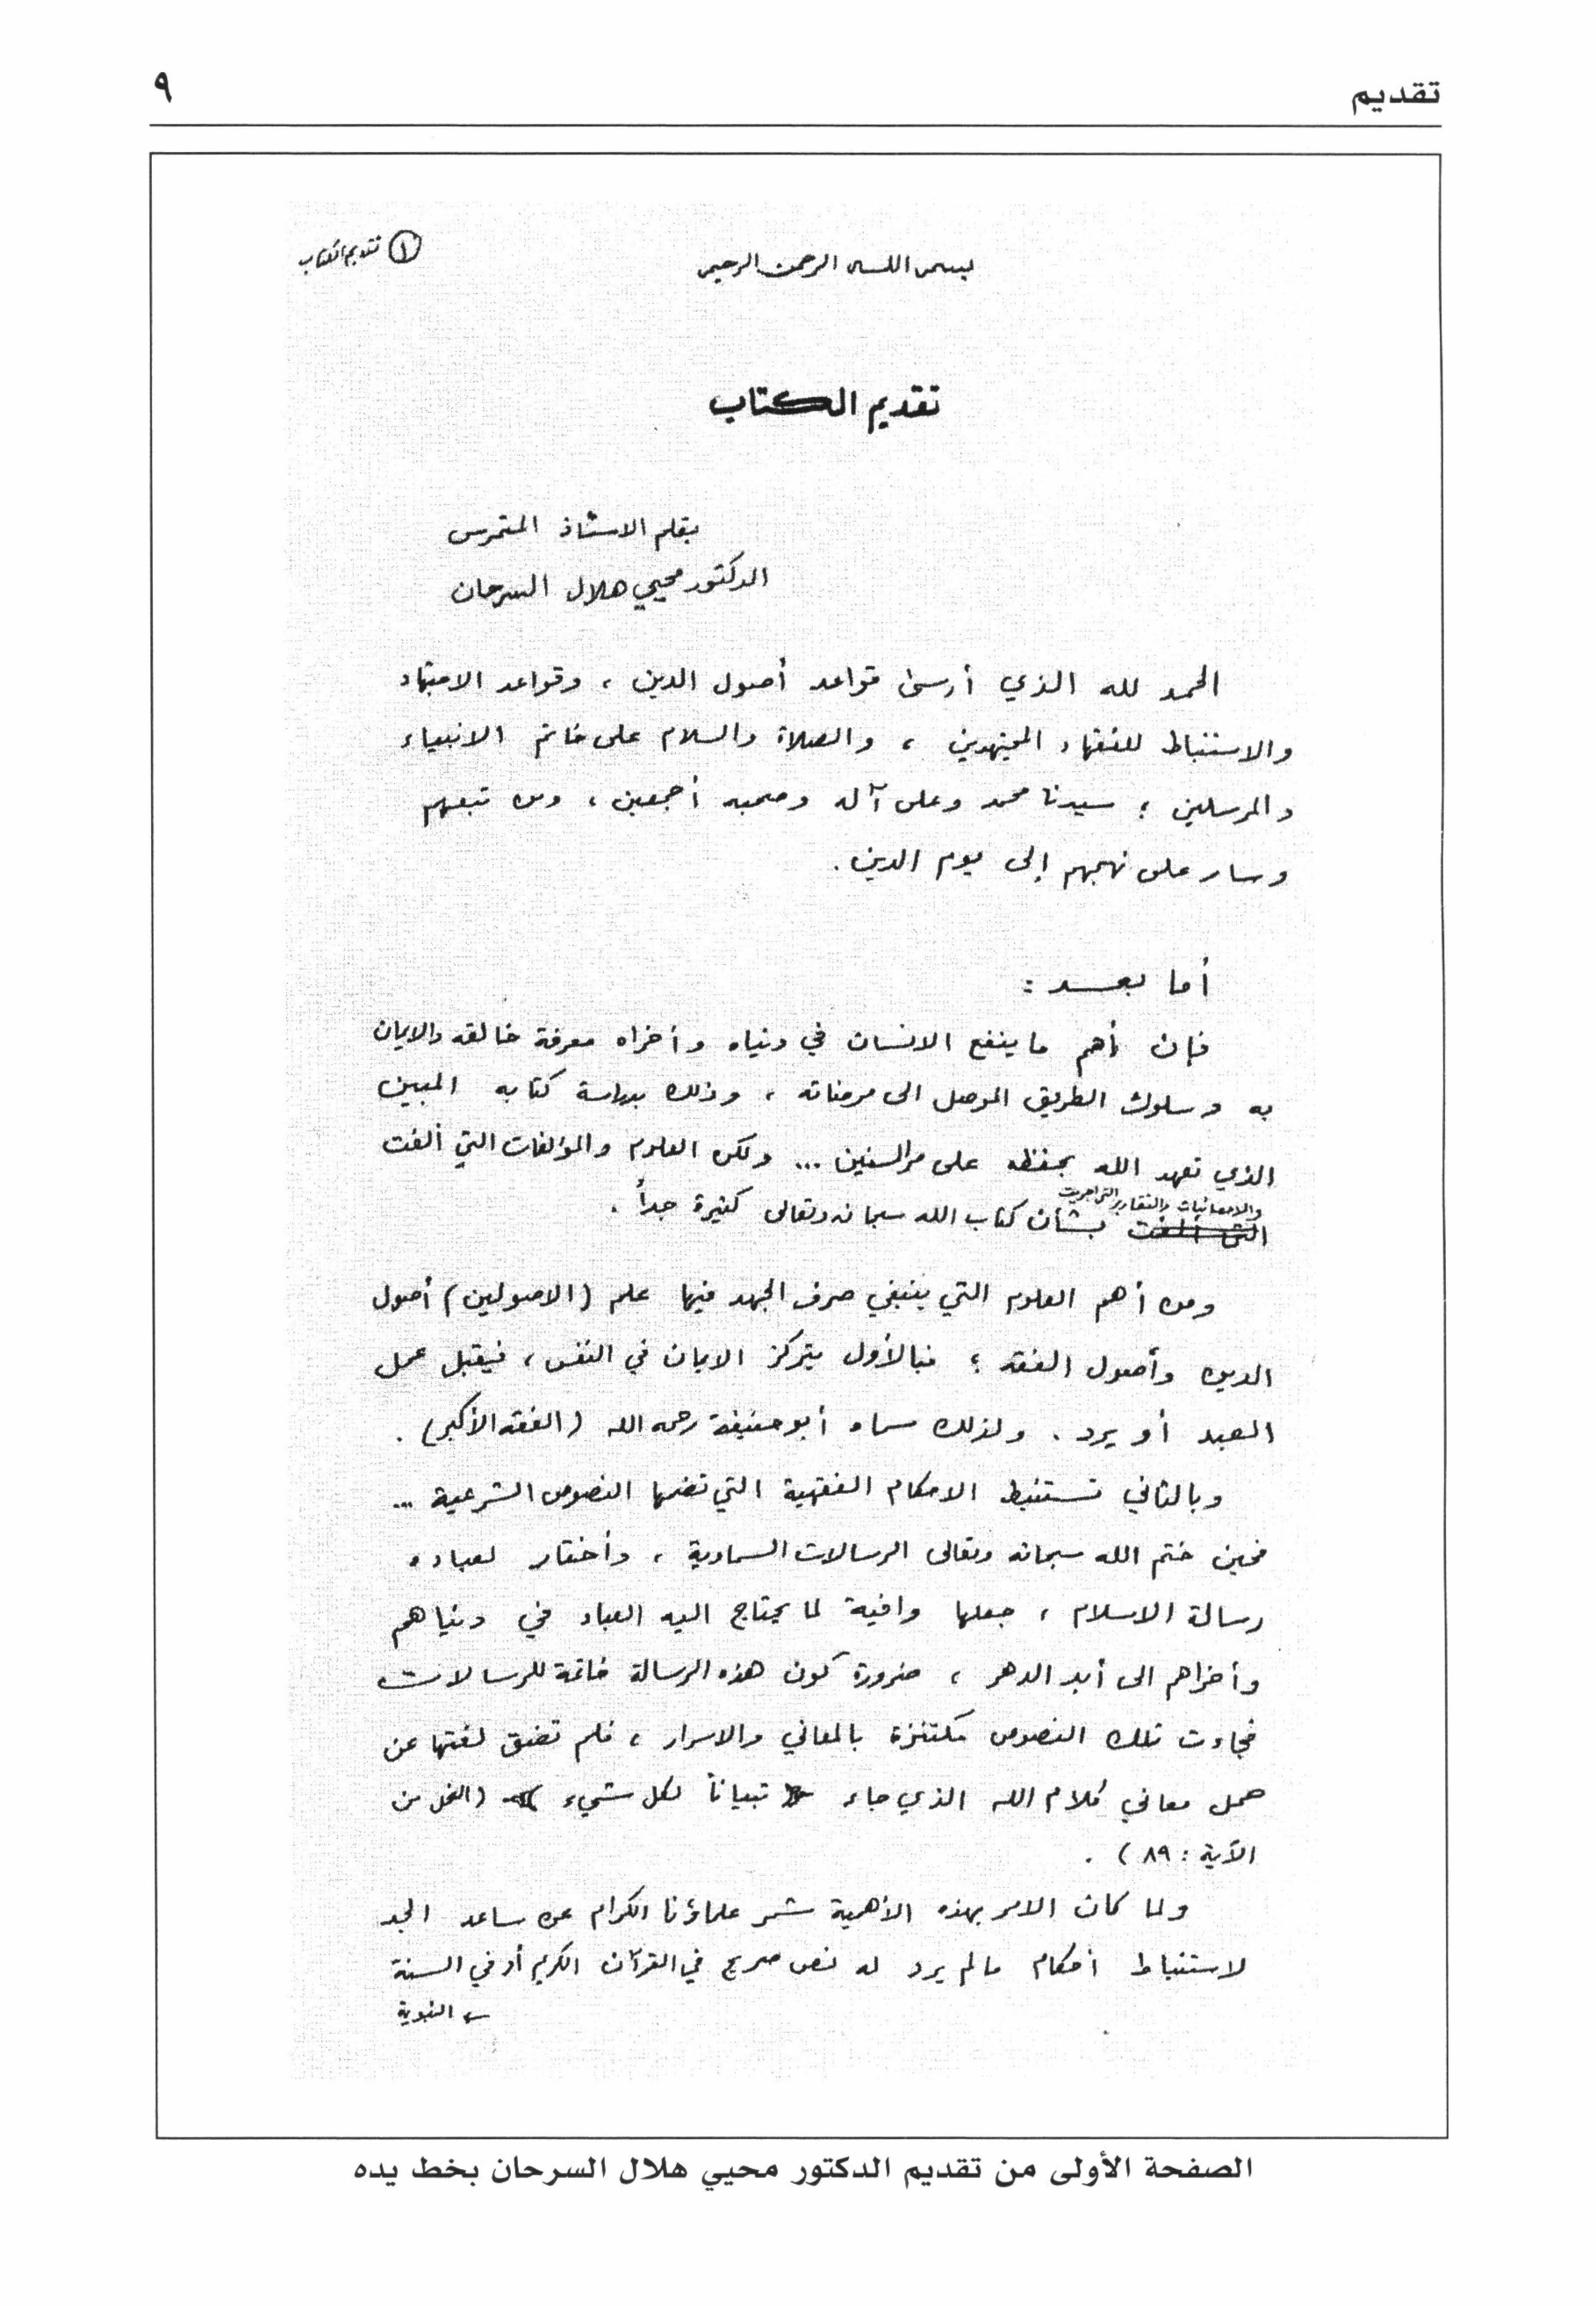 تقديم
٩
١ تقديم الكتاب
بسم الله الرحمن الرحيم
تقديم الكتاب
بقلم الاستاذ المتمرس
الدكتور محيي هلال السرحان
الحمد لله الذي أرسى قواعد أصول الدين ، وقواعد الاجتهاد
والاستنباط للفقهاء المجتهدين ، والصلاة والسلام على خاتم الانبياء
والمرسلين ؛ سيدنا محمد وعلى آله وصحبه أجمعين ، ومن تبعهم
وسار على نهجهم إلى يوم الدين .
أما بعــد :
فإن أهم ما ينفع الانسان في دنياه وأخراه معرفة خالقه والايمان
به وسلوك الطريق الموصل الى مرضاته ، وذلك بدراسة كتابه المبين
الذي تعهد الله بحفظه على مر السنين ... ولكن العلوم والمؤلفات التي ألفت
والاحصائيات والتقارير التي اجريت
التي ألفت بشأن كتاب الله سبحانه وتعالى كثيرة جداً .
ومن أهم العلوم التي ينبغي صرف الجهد فيها علم (الاصولين) أصول
الدين وأصول الفقه ؛ فبالأول يتركز الايمان في النفس ، فيقبل عمل
العبد أو يرد . ولذلك سماه أبو حنيفة رحمه الله (الفقه الأكبر) .
وبالثاني تستنبط الاحكام الفقهية التي تضمها النصوص الشرعية ...
فحين ختم الله سبحانه وتعالى الرسالات السماوية ، وأختار لعباده
رسالة الاسلام ، جعلها وافية لما يحتاج اليه العباد في دنياهم
وأخراهم الى أبد الدهر ، ضرورة كون هذه الرسالة خاتمة للرسالات
فجاءت تلك النصوص مكتنزة بالمعاني والاسرار ، فلم تضق لغتها عن
حمل معاني كلام الله الذي جاء ﴿ تبياناً لكل شيء ﴾ (النحل من
الآية : ٨٩ ) .
ولما كان الامر بهذه الأهمية شمر علماؤنا الكرام عن ساعد الجد
لاستنباط أحكام مالم يرد له نص صريح في القرآن الكريم أو في السنة
النبوية
الصفحة الأولى من تقديم الدكتور محيي هلال السرحان بخط يده